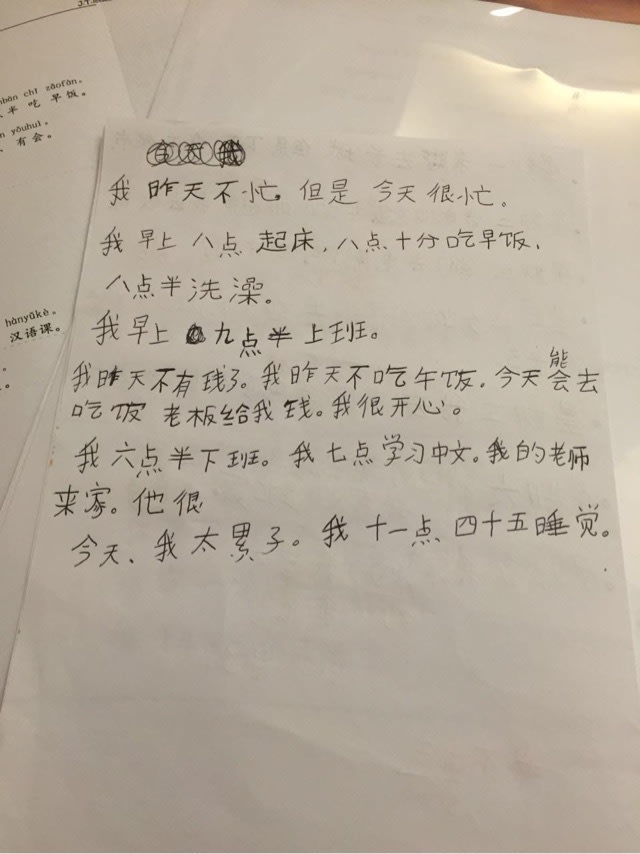 bàn chī zǎofàn.
半 吃 早饭。
yǒuhuì.
有会。
hànyǔkè.
汉语课。
我昨天不忙。但是今天很忙。
我早上八点起床,八点十分吃早饭、
八点半洗澡。
我早上九点半上班。
我昨天不有钱了。我昨天不吃午饭。今天会去
能
吃饭 老板给我钱。我很开心。
我六点半下班。我七点学习中文。我的老师
来家。他很
今天、我太累子。我十一点四十五睡觉。